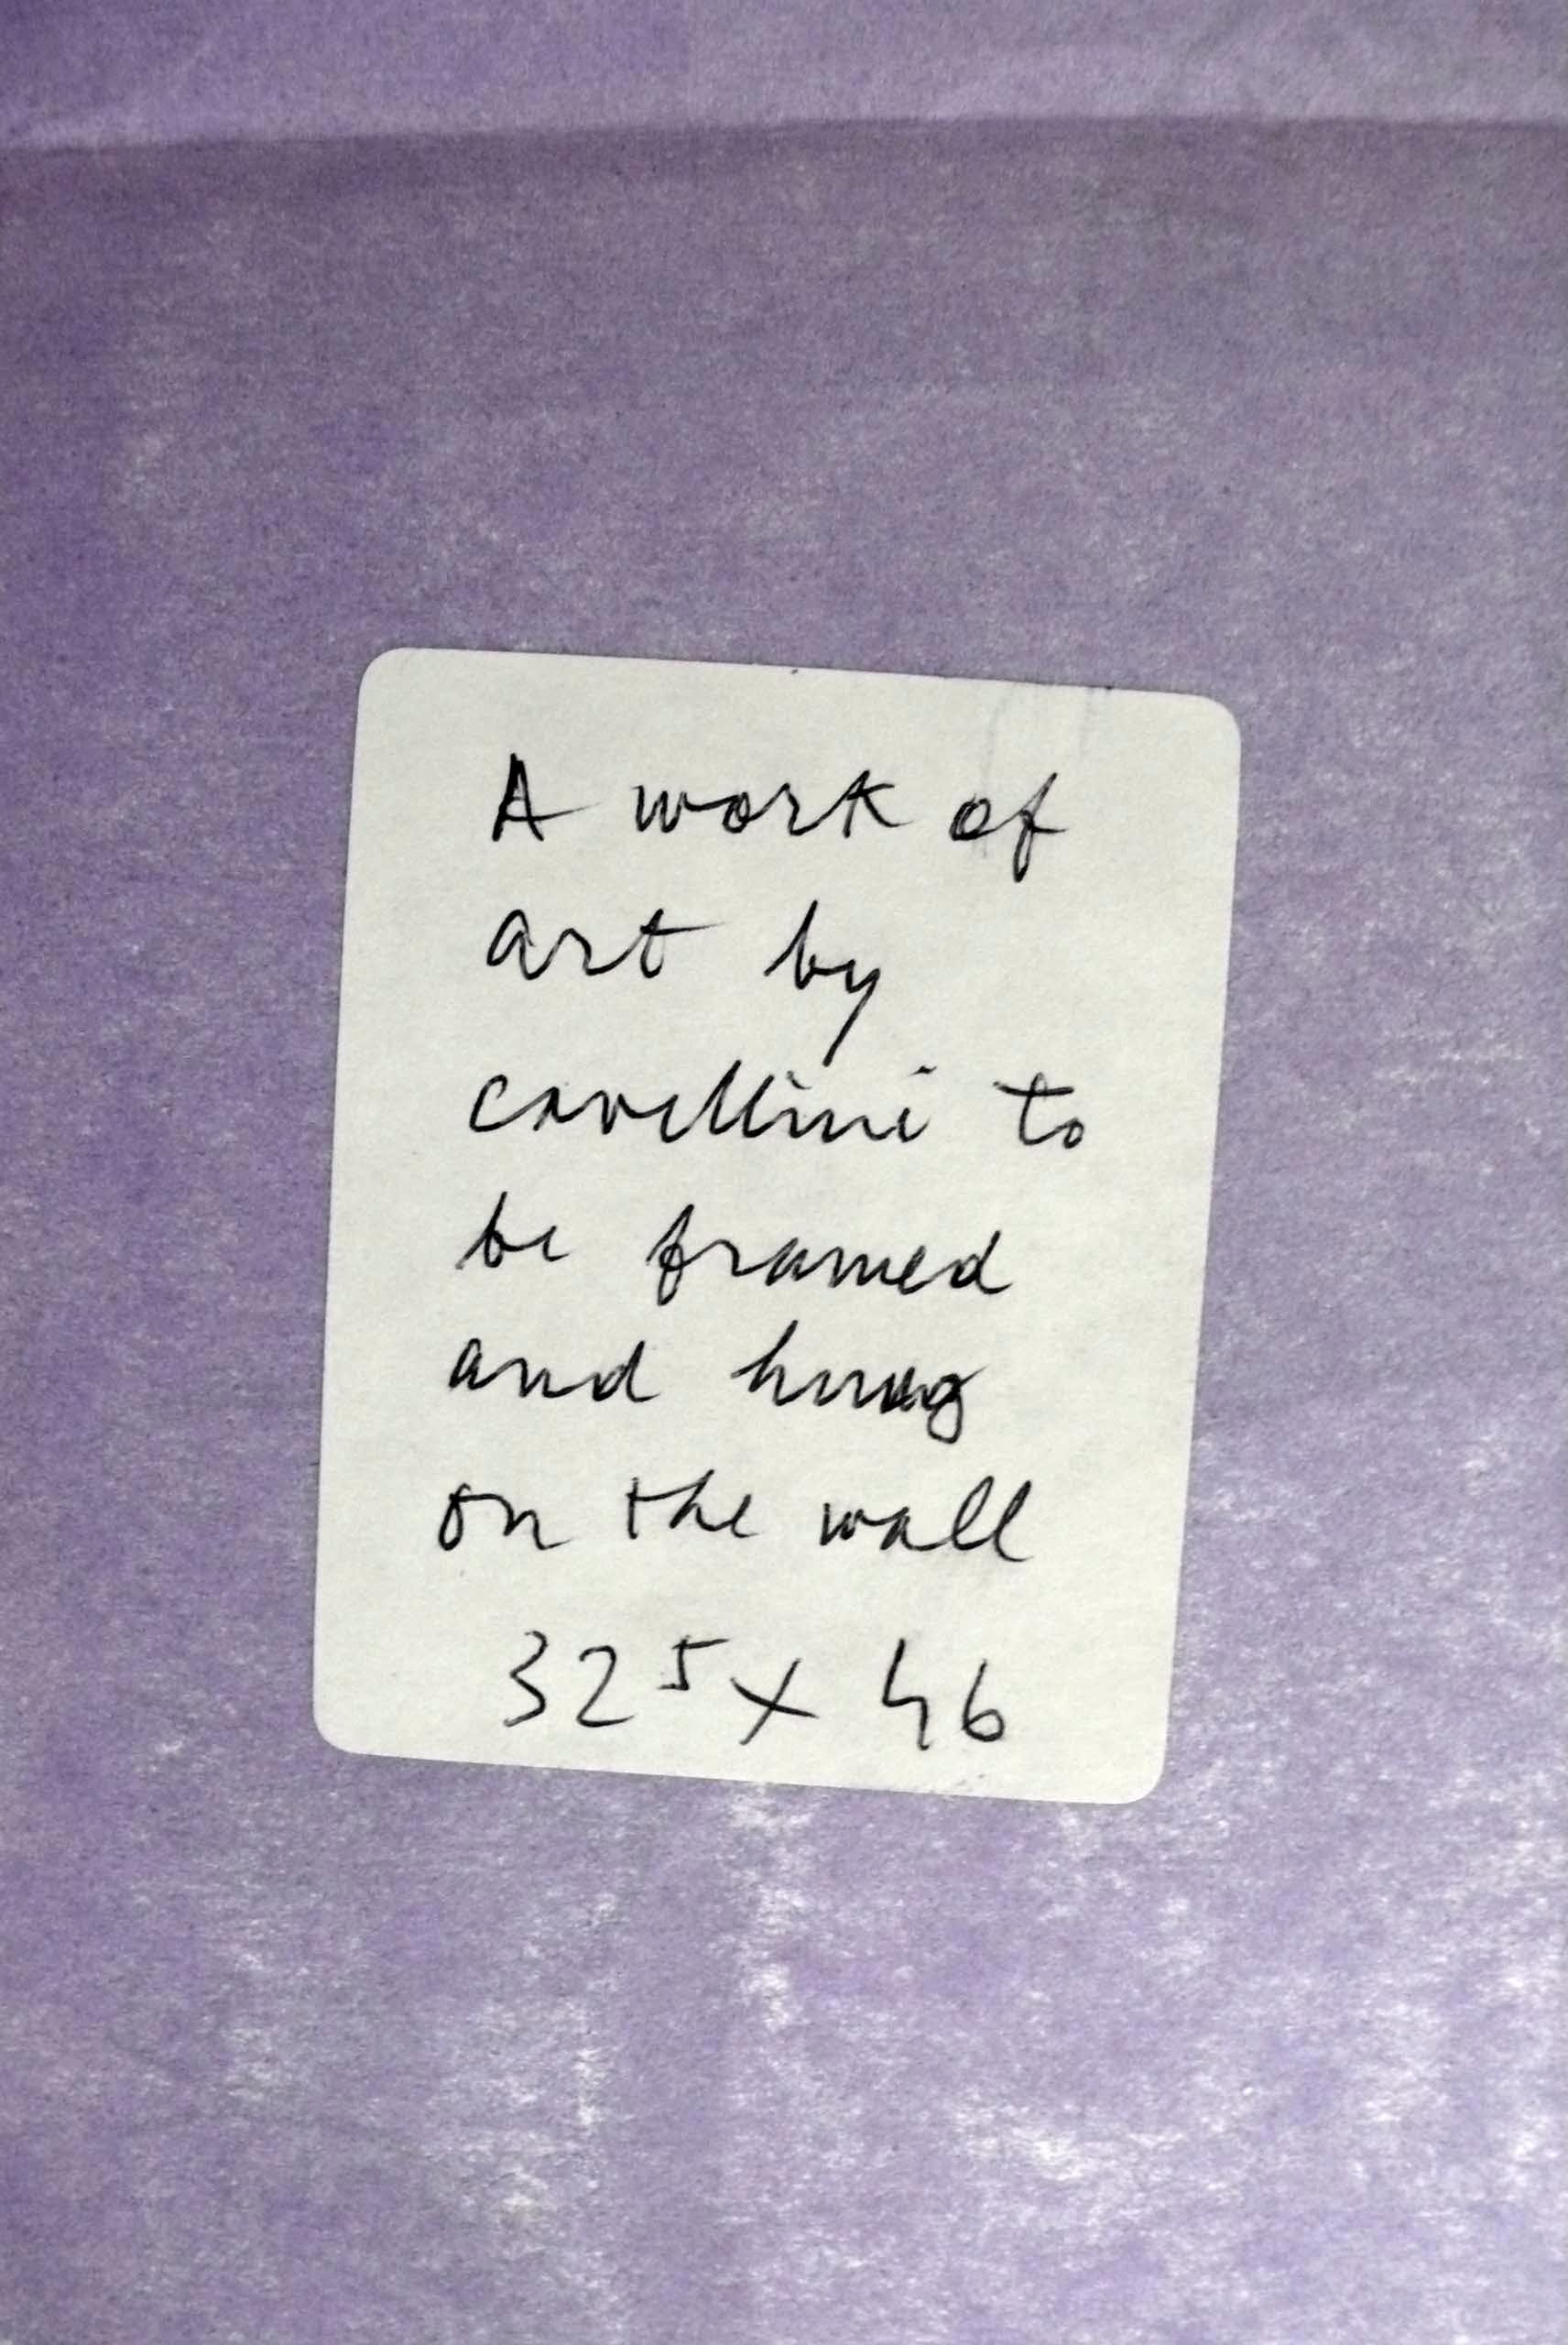 A work of
art by
cavellini to
be framed
and hung
on the wall
32⁵ x 46